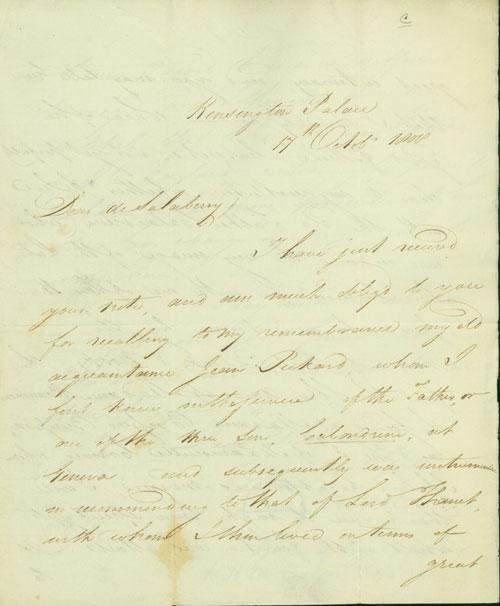 C
Kensington Palace
17th Octbr 1808
Dear de Salaberry,
I have just received
your note, and am much obliged to you
for recalling to my remembrance my old
acquaintance Jean Pickard, whom I
first knew in the service of the Father, or
one of the three Sons, Calandrini, at
Geneva and subsequently was instrumental
in recommending to that of Lord Thanet,
with whom I then lived on terms of
great